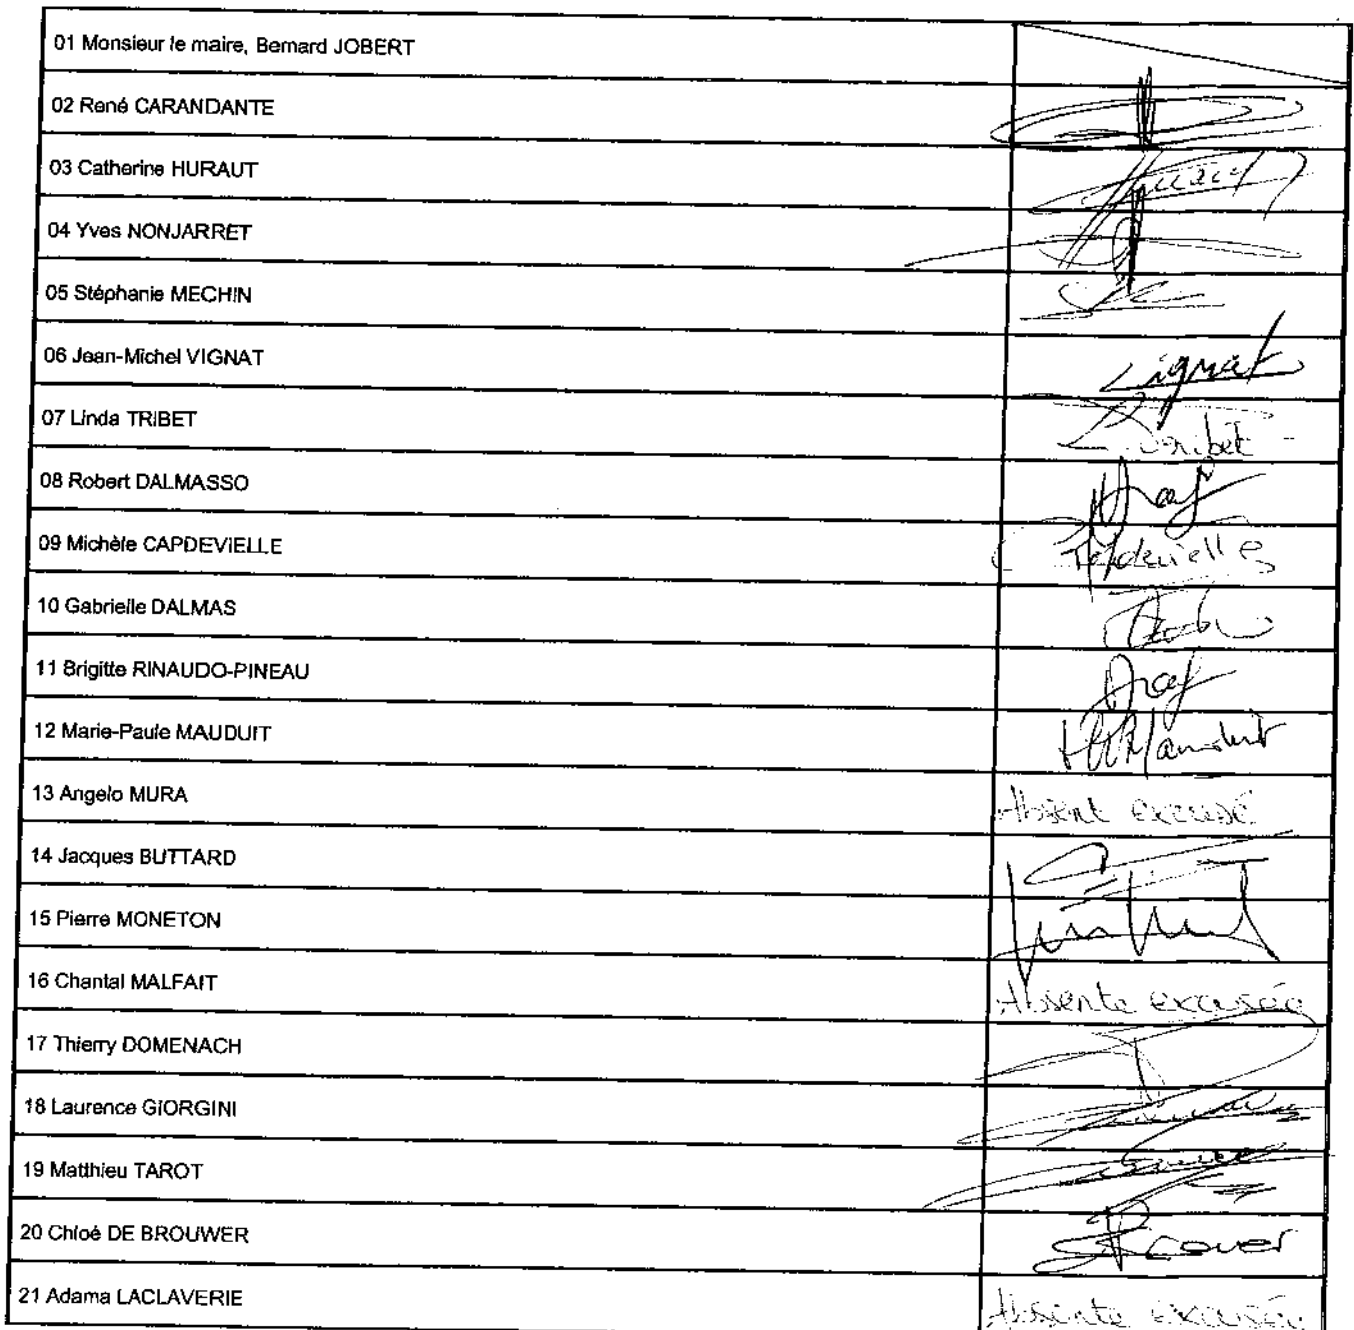 01 Monsieur le maire, Bernard JOBERT
02 René CARANDANTE
03 Catherine HURAUT
04 Yves NONJARRET
05 Stéphanie MECHIN
06 Jean-Michel VIGNAT
Vignat
07 Linda TRIBET
Tribet
08 Robert DALMASSO
09 Michèle CAPDEVIELLE
Capdevielle
10 Gabrielle DALMAS
11 Brigitte RINAUDO-PINEAU
12 Marie-Paule MAUDUIT
Mauduit
13 Angelo MURA
Absent excusé
14 Jacques BUTTARD
15 Pierre MONETON
16 Chantal MALFAIT
Absente excusée
17 Thierry DOMENACH
18 Laurence GIORGINI
19 Matthieu TAROT
20 Chloé DE BROUWER
21 Adama LACLAVERIE
Absente excusée